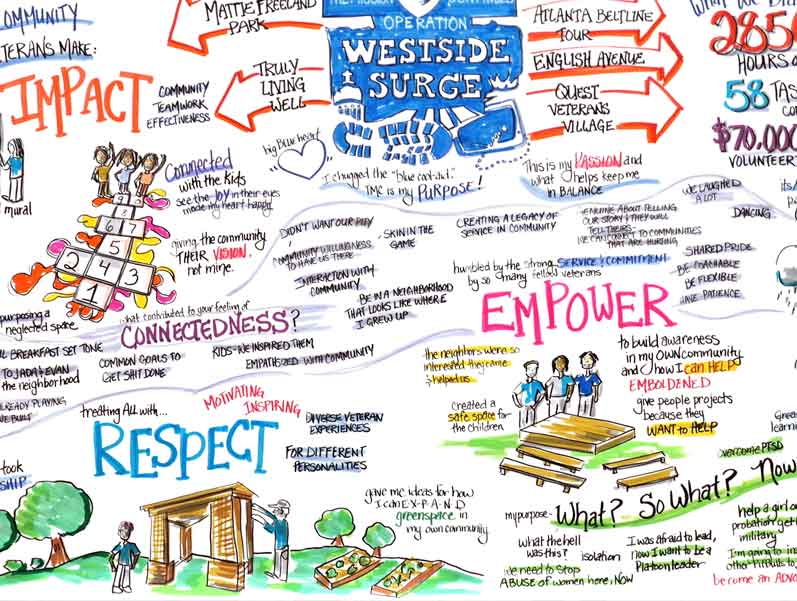 COMMUNITY
VETERANS MAKE:
IMPACT
COMMUNITY
TEAMWORK
EFFECTIVENESS
MATTIE FREELAND
PARK
TRULY
LIVING
WELL
OPERATION
WESTSIDE
SURGE
ATLANTA BELTLINE
TOUR
ENGLISH AVENUE
QUEST
VETERANS
VILLAGE
285
HOURS
58 TAS
$70,000
VOLUNTEER
mural
Connected
with the kids
see the JOY in their eyes
made my heart happy
big blue heart
I chugged the "blue cool-aid."
TMC is my PURPOSE!
This is my PASSION and
what helps keep me
in BALANCE
WE LAUGHED
A LOT
DANCING
1
2 4 3
5
6 7
8
giving the community
THEIR VISION,
not mine.
DIDN'T WANT OUR PITY
COMMUNITY WILLINGNESS
TO HAVE US THERE
INTERACTION WITH
COMMUNITY
- SKIN IN THE
GAME
BE IN A NEIGHBORHOOD
THAT LOOKS LIKE WHERE
I GREW UP
CREATING A LEGACY OF
SERVICE IN COMMUNITY
GENUINE ABOUT TELLING
OUR STORY & THEY WILL
TELL THEIRS
WE CAN CONNECT TO COMMUNITIES
THAT ARE HURTING
humbled by the strong SERVICE & COMMITMENT
by so many fellow veterans
SHARED PRIDE
BE COACHABLE
BE FLEXIBLE
HAVE PATIENCE
purposing a
neglected space
what contributed to your feeling of
CONNECTEDNESS?
BREAKFAST SET TONE
TO JADA & EVAN
the neighborhood
ALREADY PLAYING
WE BUILT
COMMON GOALS TO
GET SHIT DONE
KIDS - WE INSPIRED THEM
EMPATHSIZED WITH COMMUNITY
EMPOWER
the neighbors were so
interested they came
& helped us
created a
safe space for
the children
to build awareness
in my OWN community
and how I can HELP
EMBOLDENED
give people projects
because they
WANT to HELP
treating All with...
MOTIVATING
INSPIRING
RESPECT
DIVERSE VETERAN
EXPERIENCES
FOR DIFFERENT
PERSONALITIES
took
SHIP
gave me ideas for how
I can E-X-P-A-N-D
greenspace in
my own community
overcome PTSD
Gree
learnin
my purpose -
What? So What? Now
What the hell
was this?
isolation
I was afraid to lead,
now I want to be a
Platoon leader
we need to STOP
ABUSE of women here, NOW
help a girl o
probation get
military
I'm going to
become an ADVO